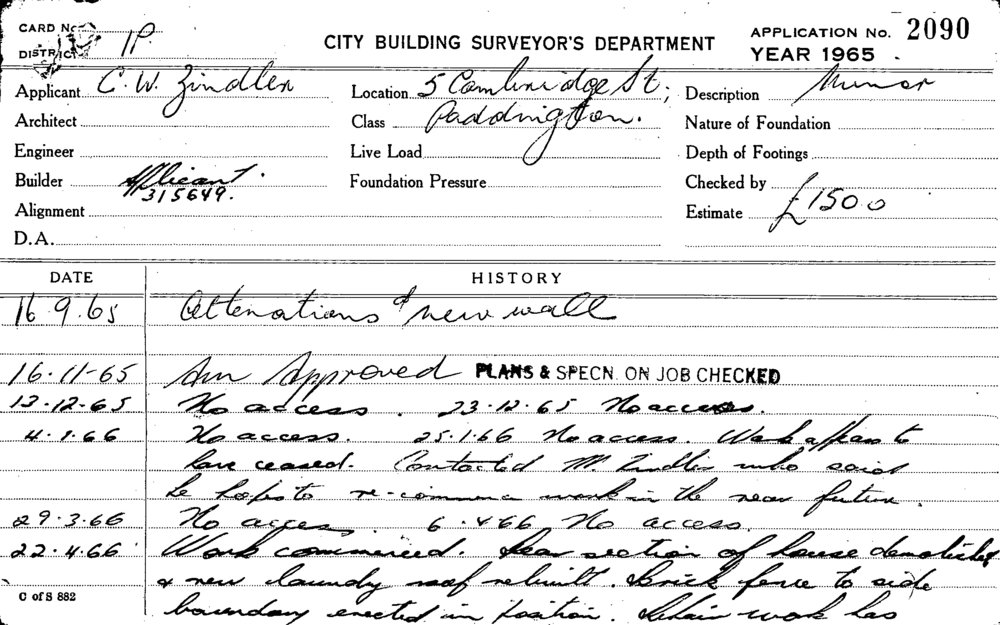 CARD No.
DISTRICT 1P.
CITY BUILDING SURVEYOR'S DEPARTMENT
APPLICATION No. 2090
YEAR 1965
Applicant C. W. Zindler
Location 5 Cambridge St;
Description Minor
Architect
Class Paddington.
Nature of Foundation
Engineer
Live Load
Depth of Footings
Builder Applicant.
315649.
Foundation Pressure
Checked by
Alignment
Estimate £1500
D.A.
DATE HISTORY
16.9.65 Alterations & new wall
16.11.65 Approved PLANS & SPECN. ON JOB CHECKED
13.12.65 No access. 23.12.65 No access.
4.1.66 No access. 25.1.66 No access. Work appears to
have ceased. Contacted Mr Zindler who said
he hopes to re-commence work in the near future.
29.3.66 No access. 6.4.66 No access.
22.4.66 Work commenced. Rear section of house demolished
& new laundry roof rebuilt. Brick fence to side
boundary erected in position. work has
C of S 882